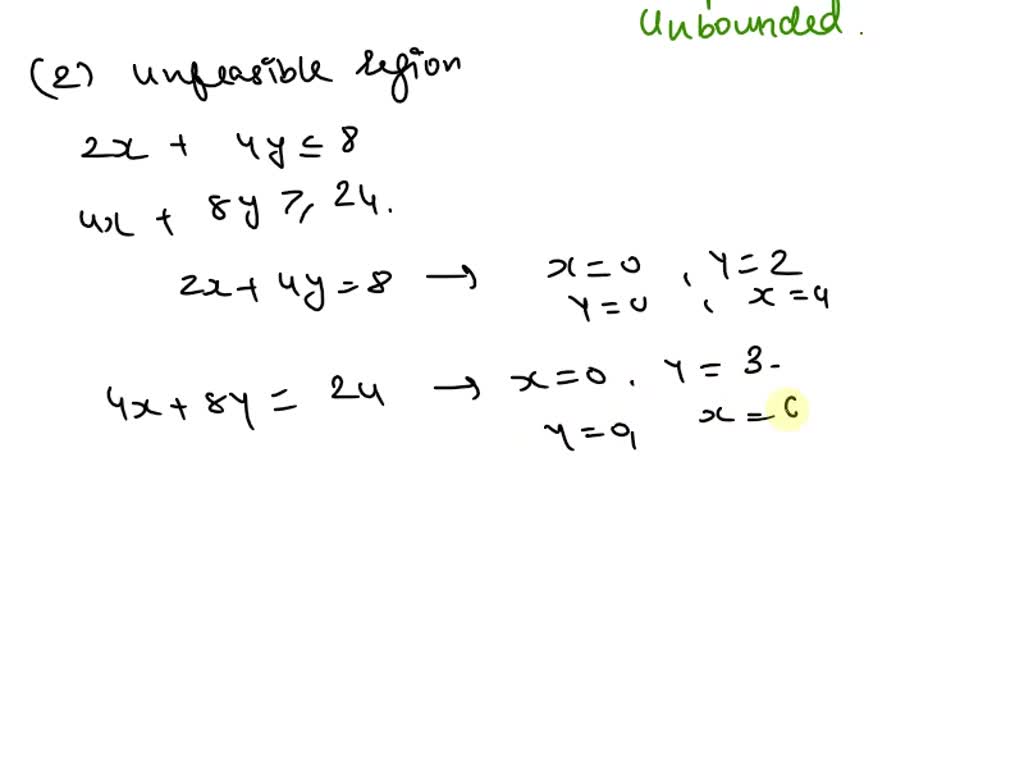 Unbounded.
(2) unfeasible region
2x + 4y ≤ 8
4x + 8y ≥ 24.
2x + 4y = 8 → x = 0, y = 2
y = 0, x = 4
4x + 8y = 24 → x = 0. y = 3-
y = 0, x =